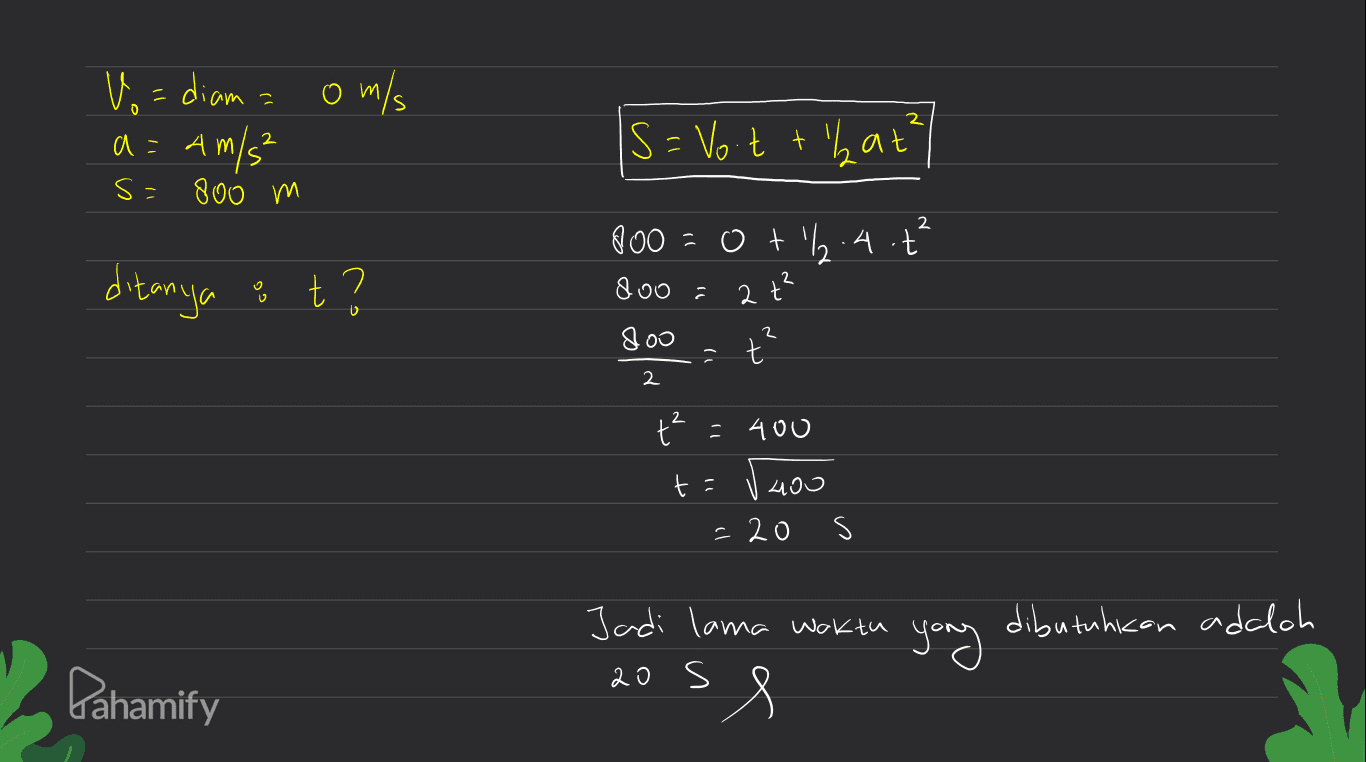 V₀ = diam = 0 m/s
a = 4 m/s²
S = 800 m
ditanya : t ?
S = V₀.t + ½at²
800 = 0 + ½.4.t²
800 = 2t²
800/2 = t²
t² = 400
t = √400
= 20 s
Jadi lama waktu yang dibutuhkan adalah
20 s
Pahamify